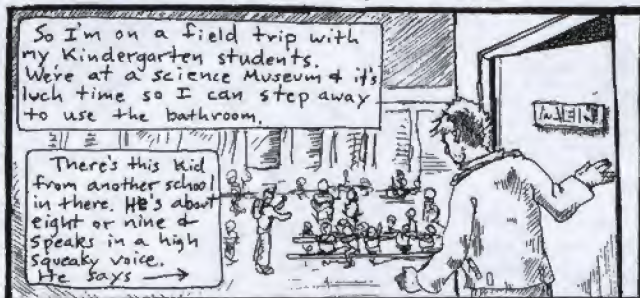 So I'm on a field trip with
my Kindergarten students.
We're at a science Museum & it's
luch time so I can step away
to use the bathroom.
There's this kid
from another school
in there. He's about
eight or nine &
speaks in a high
squeaky voice.
He says →
MEN